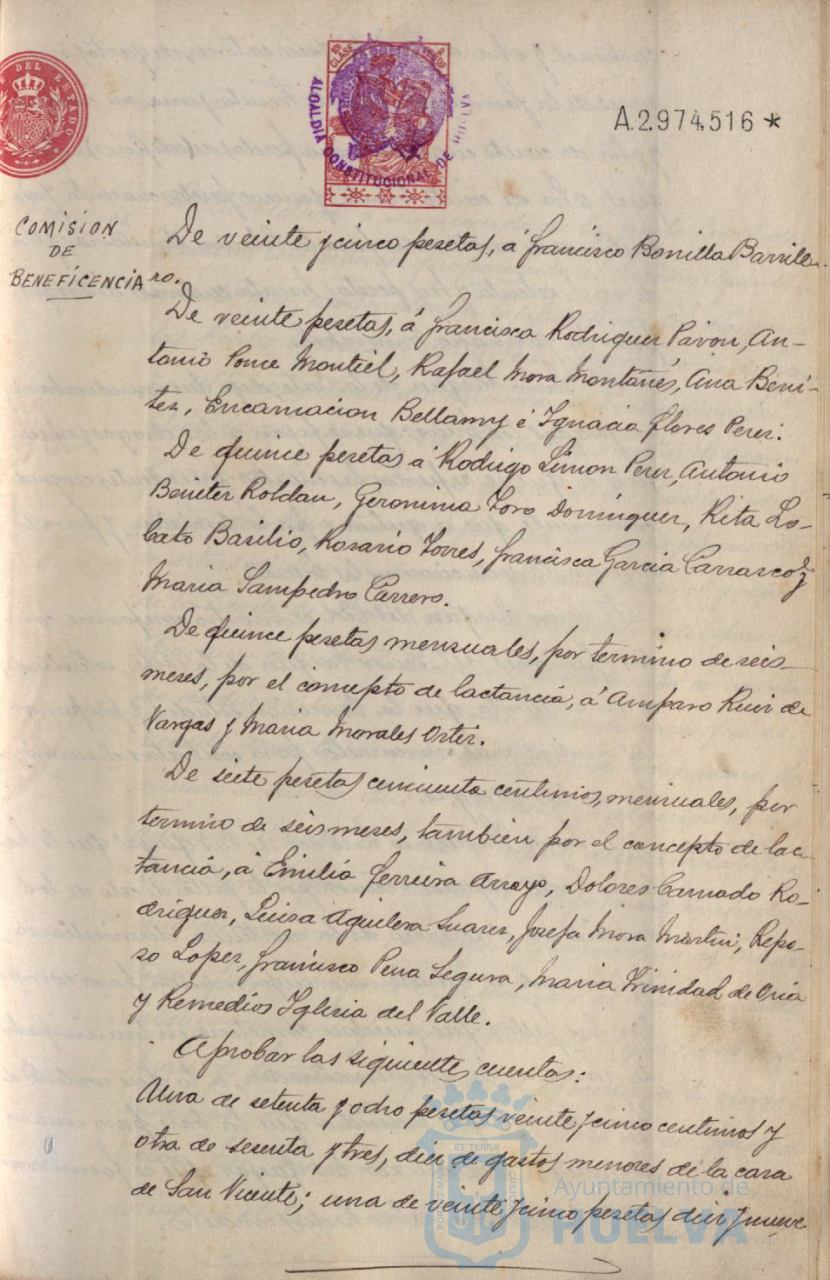 DEL ESTADO
CLASE
ALCALDIA CONSTITUCIONAL DE HUELVA
A.2.974.516 *
COMISION
DE
BENEFICENCIA
De veinte y cinco pesetas, á Francisco Bonilla Barrille-
ro.
De veinte pesetas, á Francisca Rodriguez Pavon, An-
tonio Ponce Montiel, Rafael Mora Montañés, Ana Beni-
tez, Encarnacion Bellamy é Ignacia Flores Perez.
De quince pesetas á Rodrigo Limon Perez, Antonio
Benitez Roldan, Geronima Toro Dominguez, Rita Lo-
bato Basilio, Rosario Torres, Francisca Garcia Carrasco y
Maria Sampedro Carrero.
De quince pesetas mensuales, por termino de seis
meses, por el concepto de lactancia, á Amparo Ruiz de
Vargas y Maria Morales Ortiz.
De siete pesetas cincuenta centimos, mensuales, por
termino de seis meses, tambien por el concepto de lac-
tancia, á Emilia Ferreira Arroyo, Dolores Carnado Ro-
driguez, Luisa Aguilera Suarez, Josefa Mora Martin, Repo-
so Lopez, Francisco Pena Segura, Maria Trinidad de Oria
y Remedios Iglesia del Valle.
Aprobar las siguientes cuentas:
Una de setenta y ocho pesetas veinte y cinco centimos y
otra de sesenta y tres, diez de gastos menores de la casa
de San Vicente; una de veinte y cinco pesetas diez y nueve
Ayuntamiento de
HUELVA